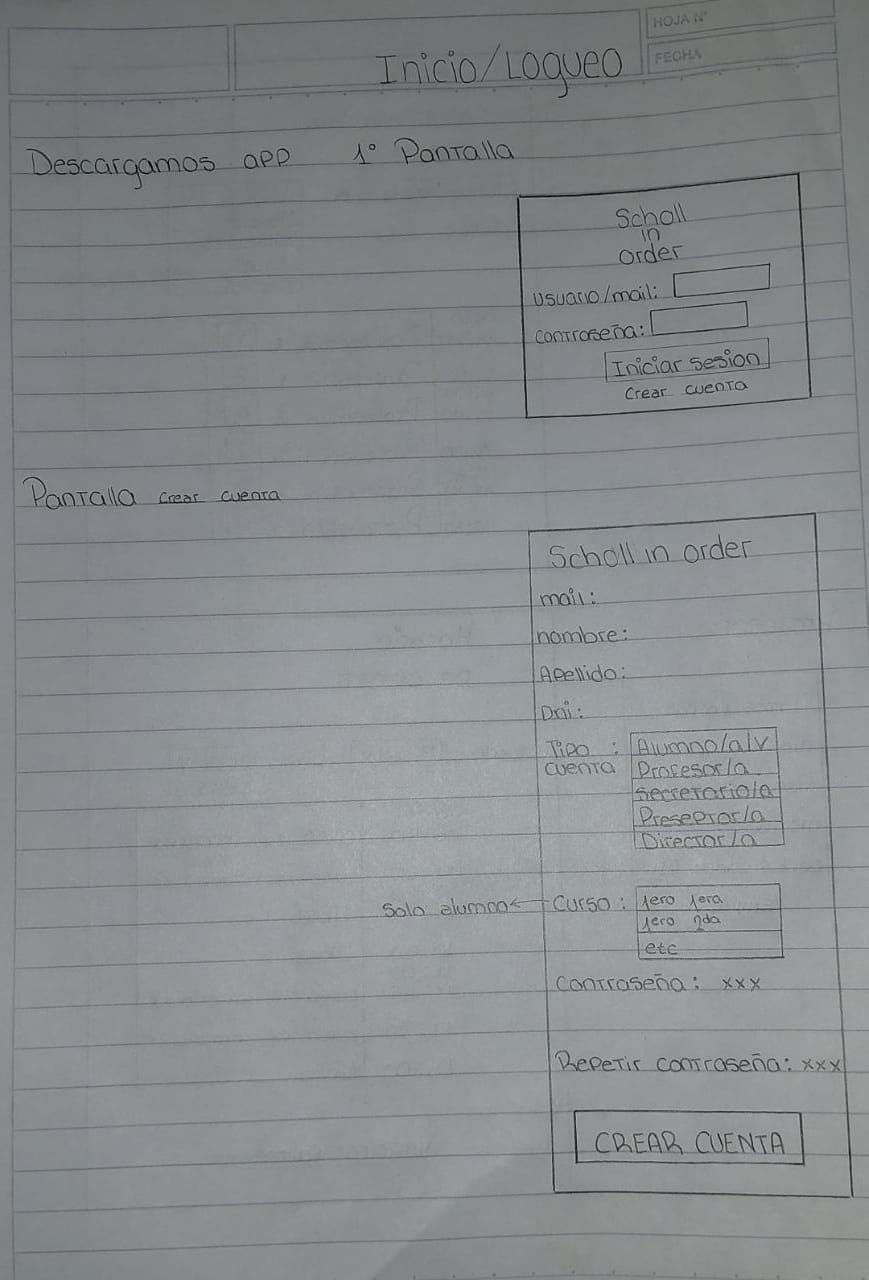 HOJA N°
FECHA
Inicio/Logueo
Descargamos app 1° Pantalla
Scholl
in
order
usuario/mail:
contraseña:
Iniciar sesion
Crear cuenta
Pantalla crear cuenta
Scholl in order
mail:
nombre:
Apellido:
Dni:
Tipo : Alumno/a/v
cuenta Profesor/a
Secretario/a
Preseptor/a
Director/a
Solo alumnos ← Curso : 1ero 1era
1ero 2da
etc
Contraseña: xxx
Repetir contraseña: xxx
CREAR CUENTA